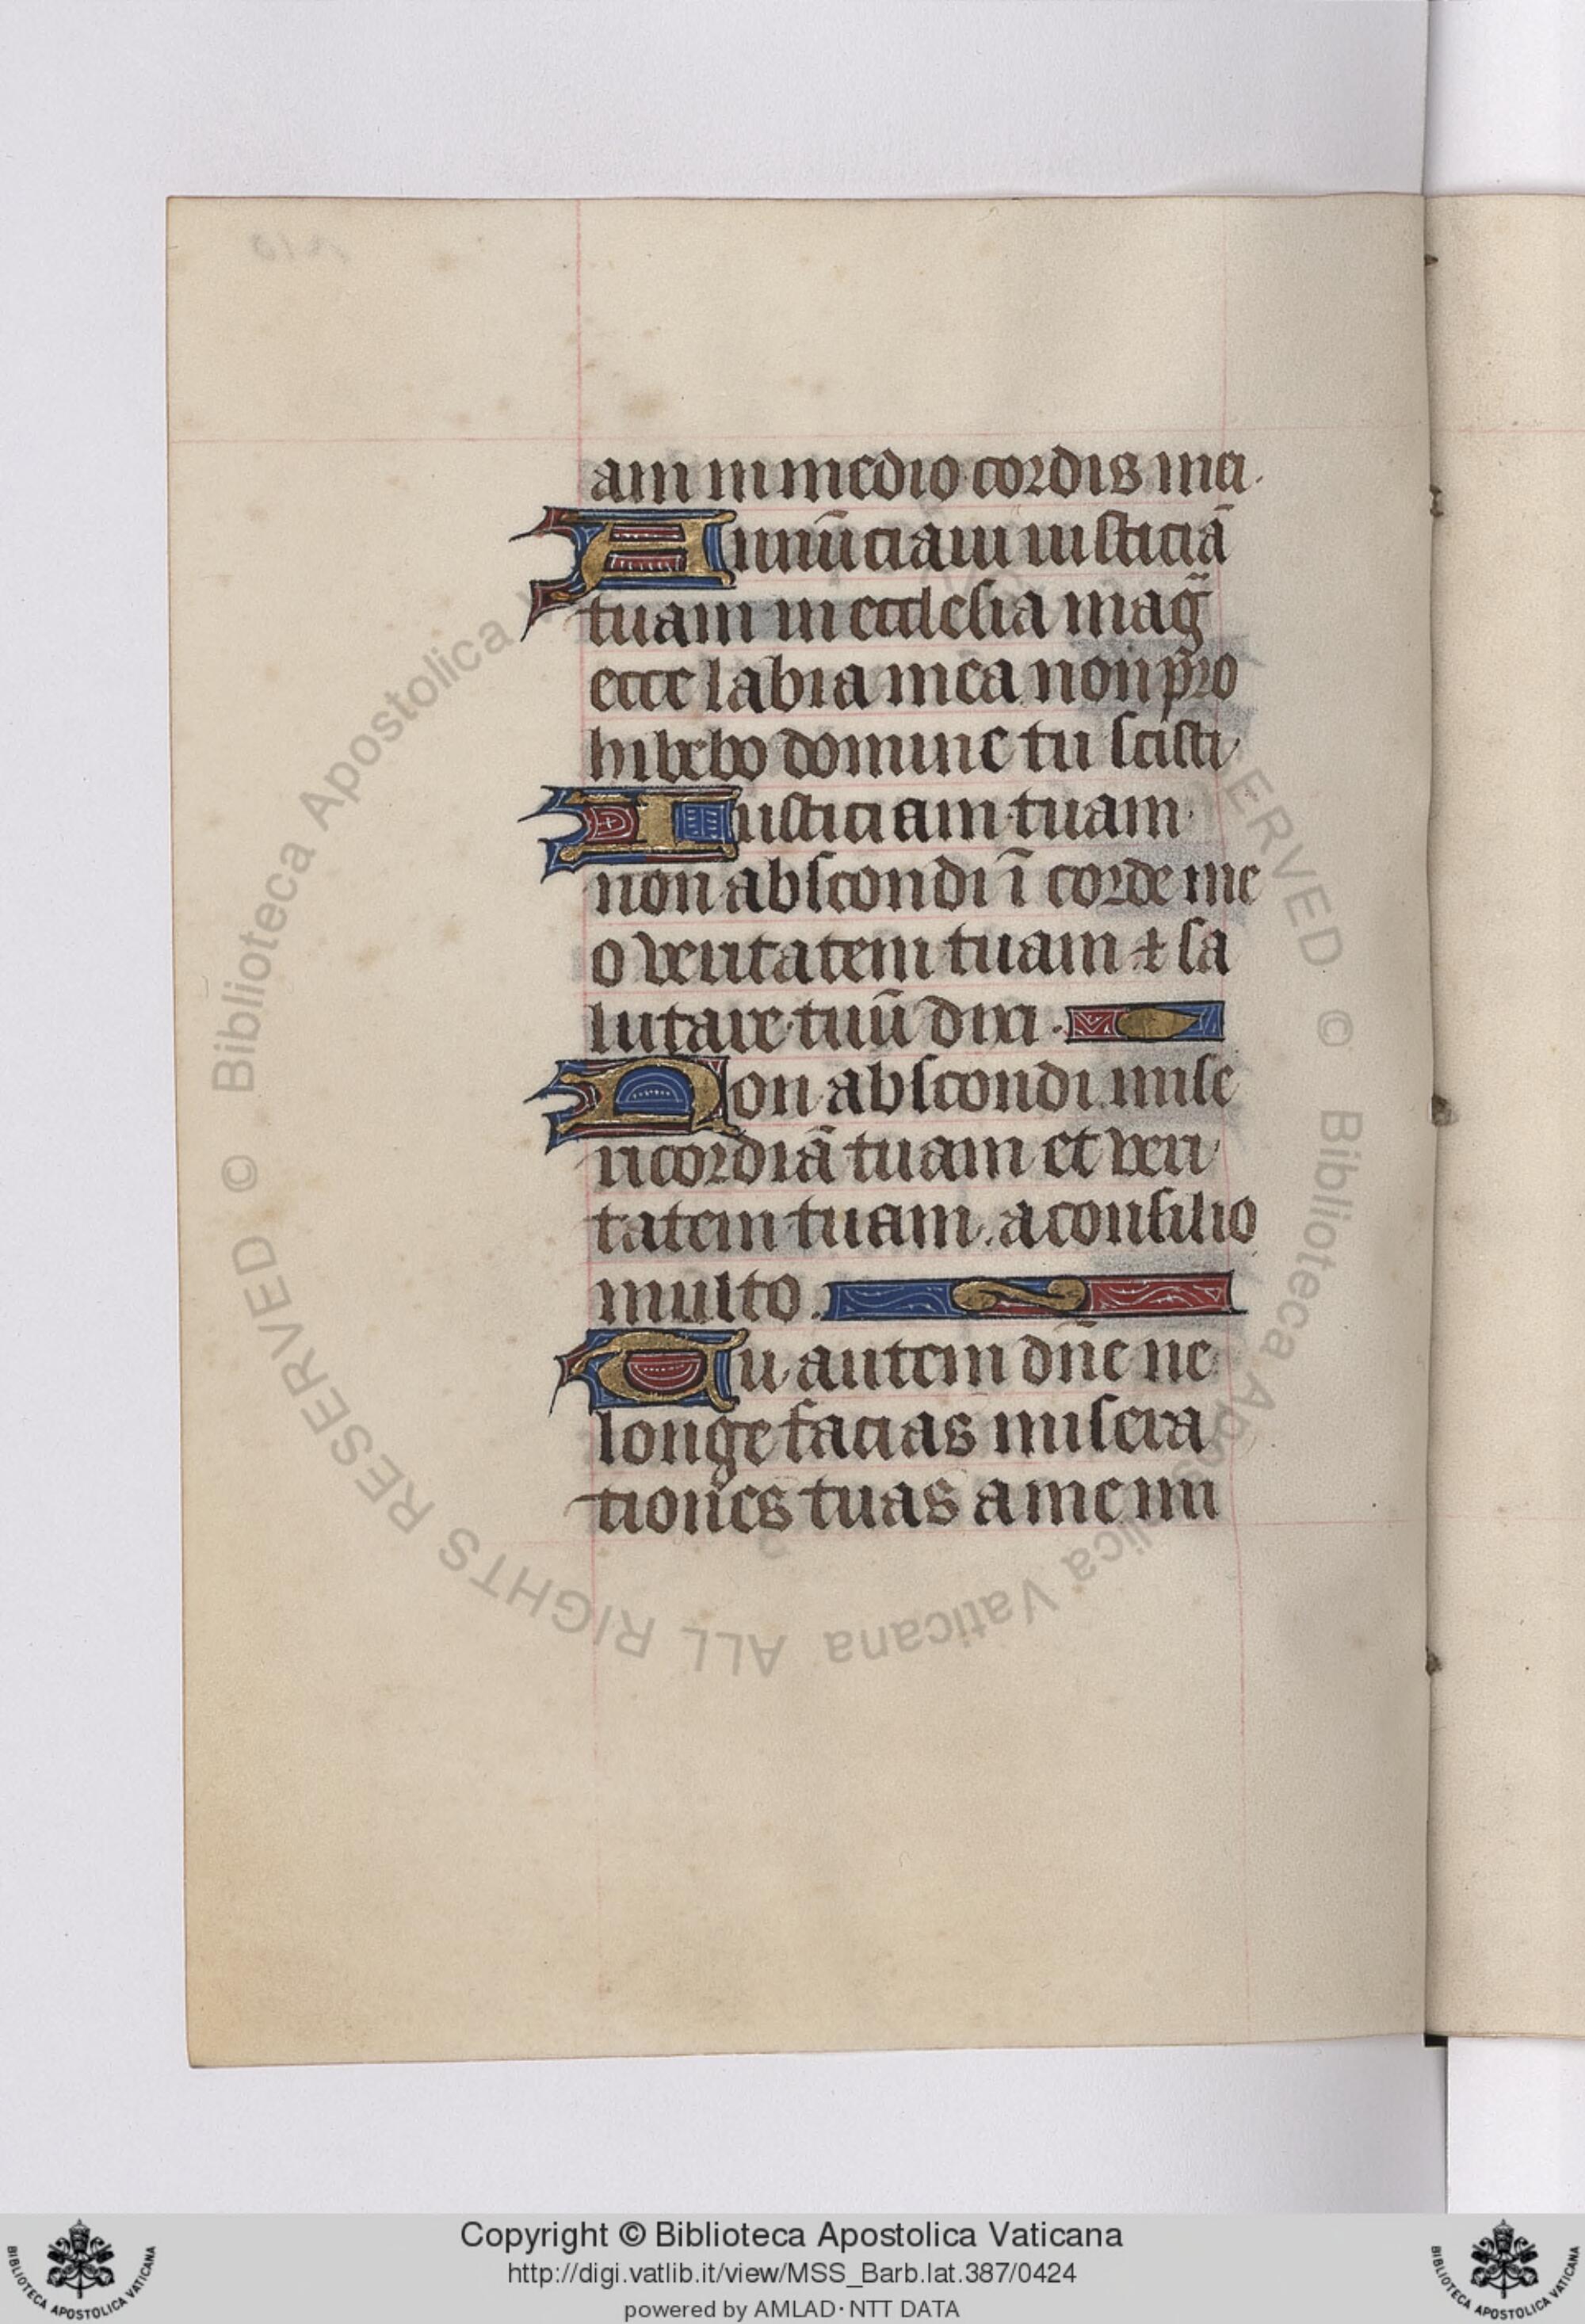 am in medio cordis mei.
Annūciaui iusticiā
tuam in ecclesia mag̃
ecce labia mea non pro
hibebo domine tu scisti
Iusticiam tuam
non abscondi ī corde me
o veritatem tuam ⁊ sa
lutare tuū dixi.
Non abscondi mise
ricordiā tuam et veri
tatem tuam a consilio
multo.
Tu autem dn̄e ne
longe facias misera
tiones tuas a me mi
© Biblioteca Apostolica Vaticana ALL RIGHTS RESERVED © Biblioteca Apostolica
Copyright © Biblioteca Apostolica Vaticana
http://digi.vatlib.it/view/MSS_Barb.lat.387/0424
powered by AMLAD·NTT DATA
BIBLIOTECA APOSTOLICA VATICANA
BIBLIOTECA APOSTOLICA VATICANA